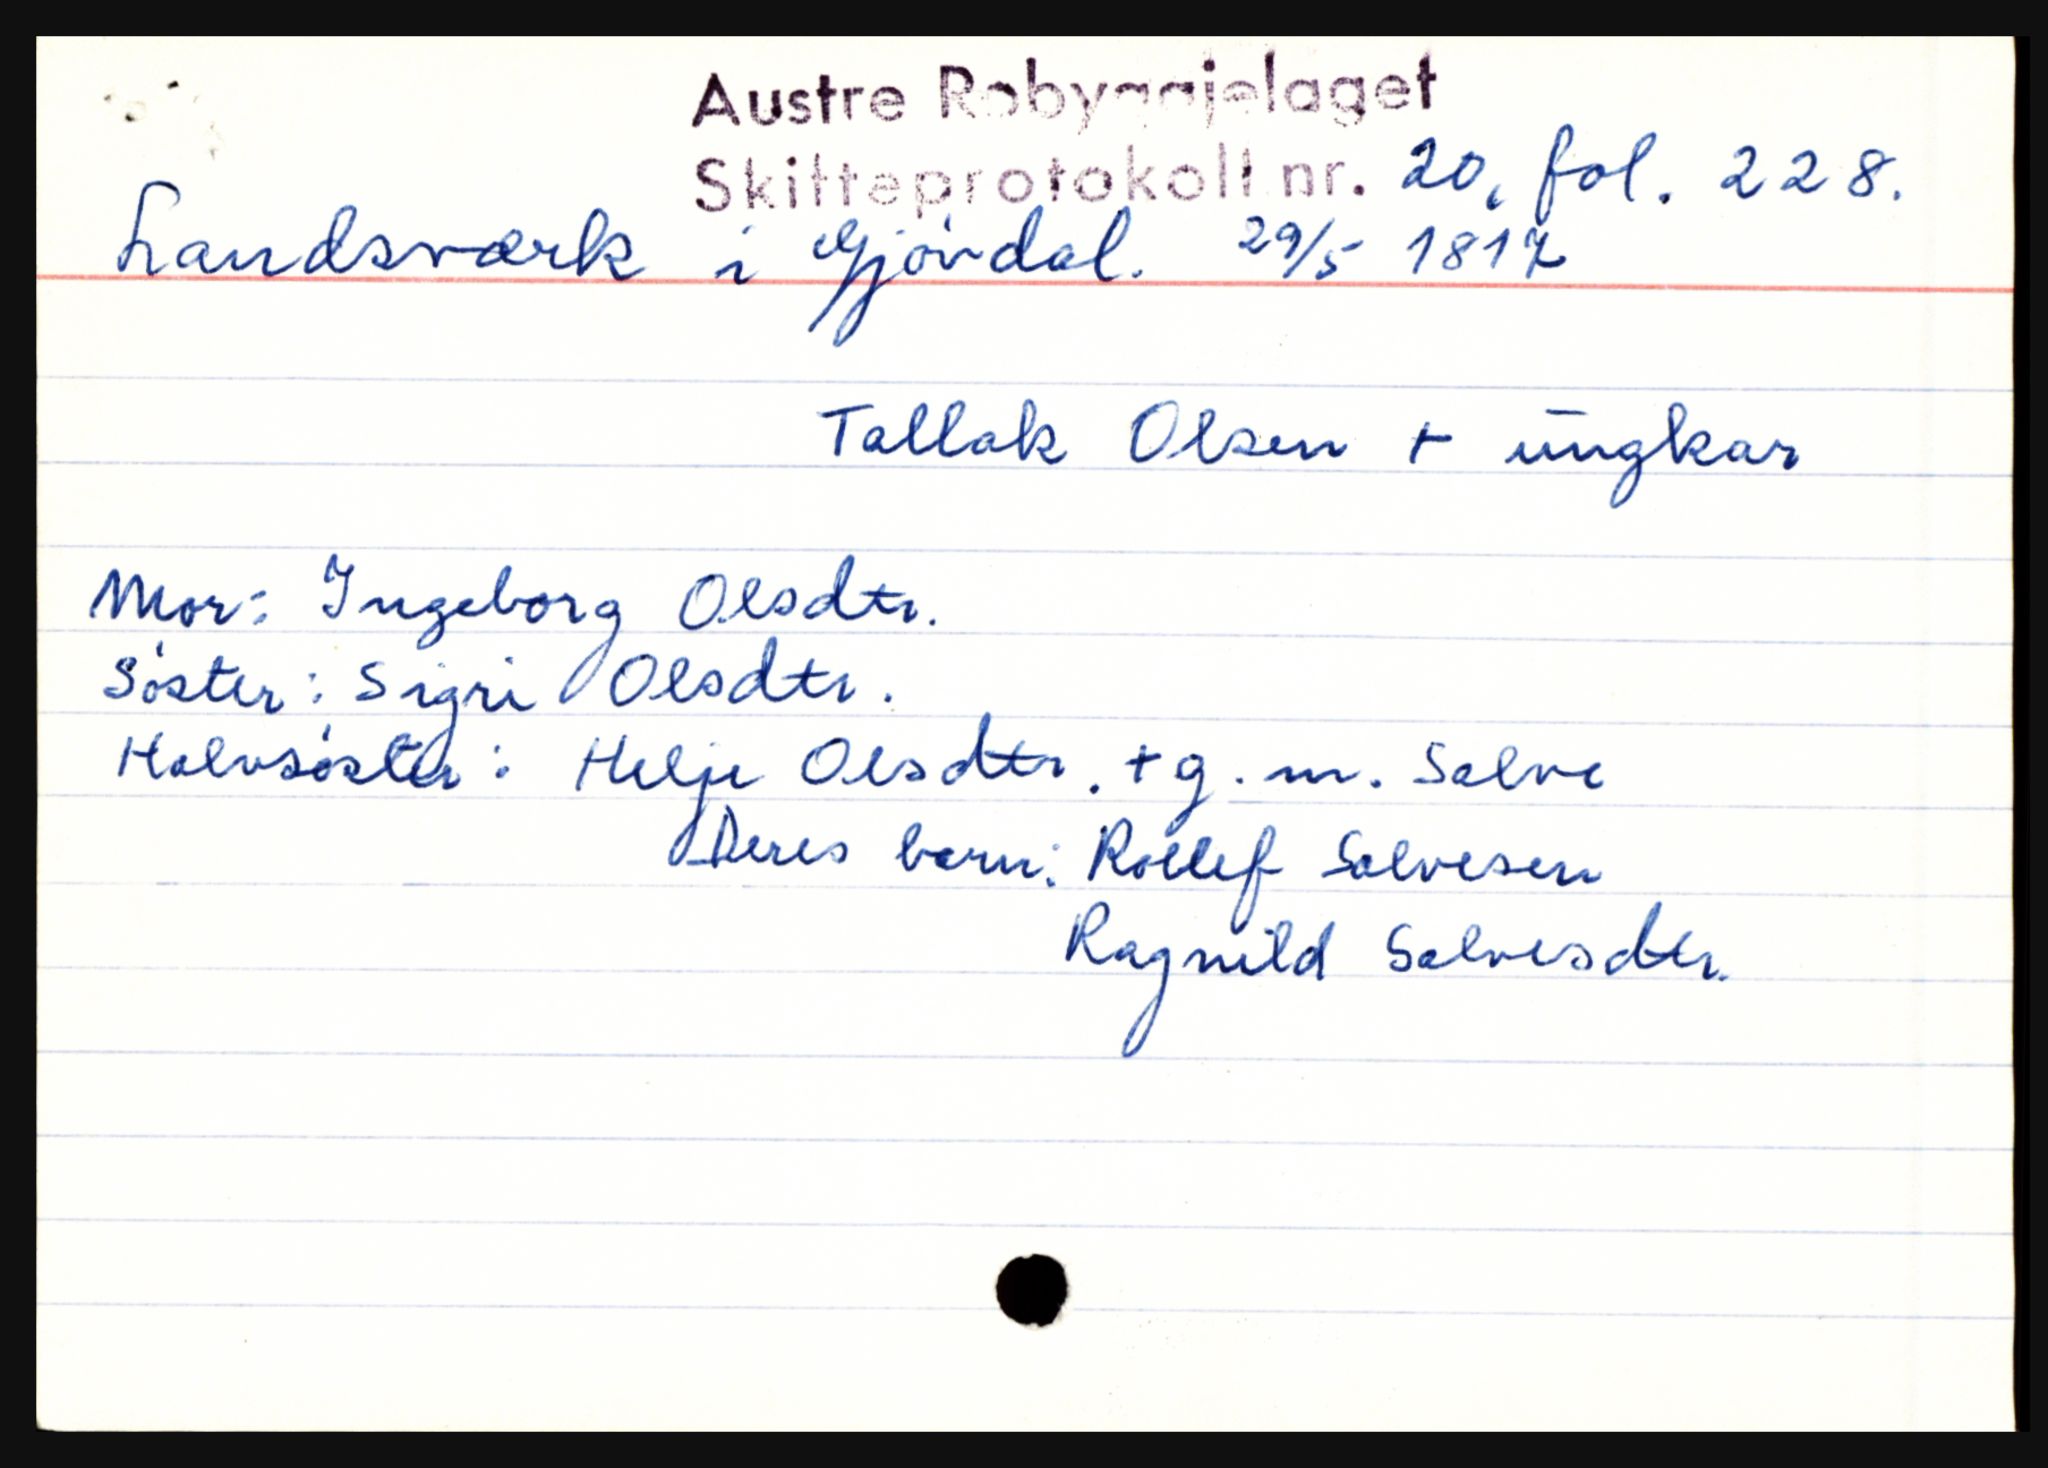 Austre Robyggjelaget
Skifteprotokoll nr. 20, fol. 228.
Landsværk i Gjövdal. 29/5 1817
Tallak Olsen + ungkar
Mor: Ingeborg Olsdtr.
Söster: Sigri Olsdtr.
Halvsöster: Helje Olsdtr. + g. m. Salve
Deres barn: Rollef Salvesen
Ragnild Salvesdtr.